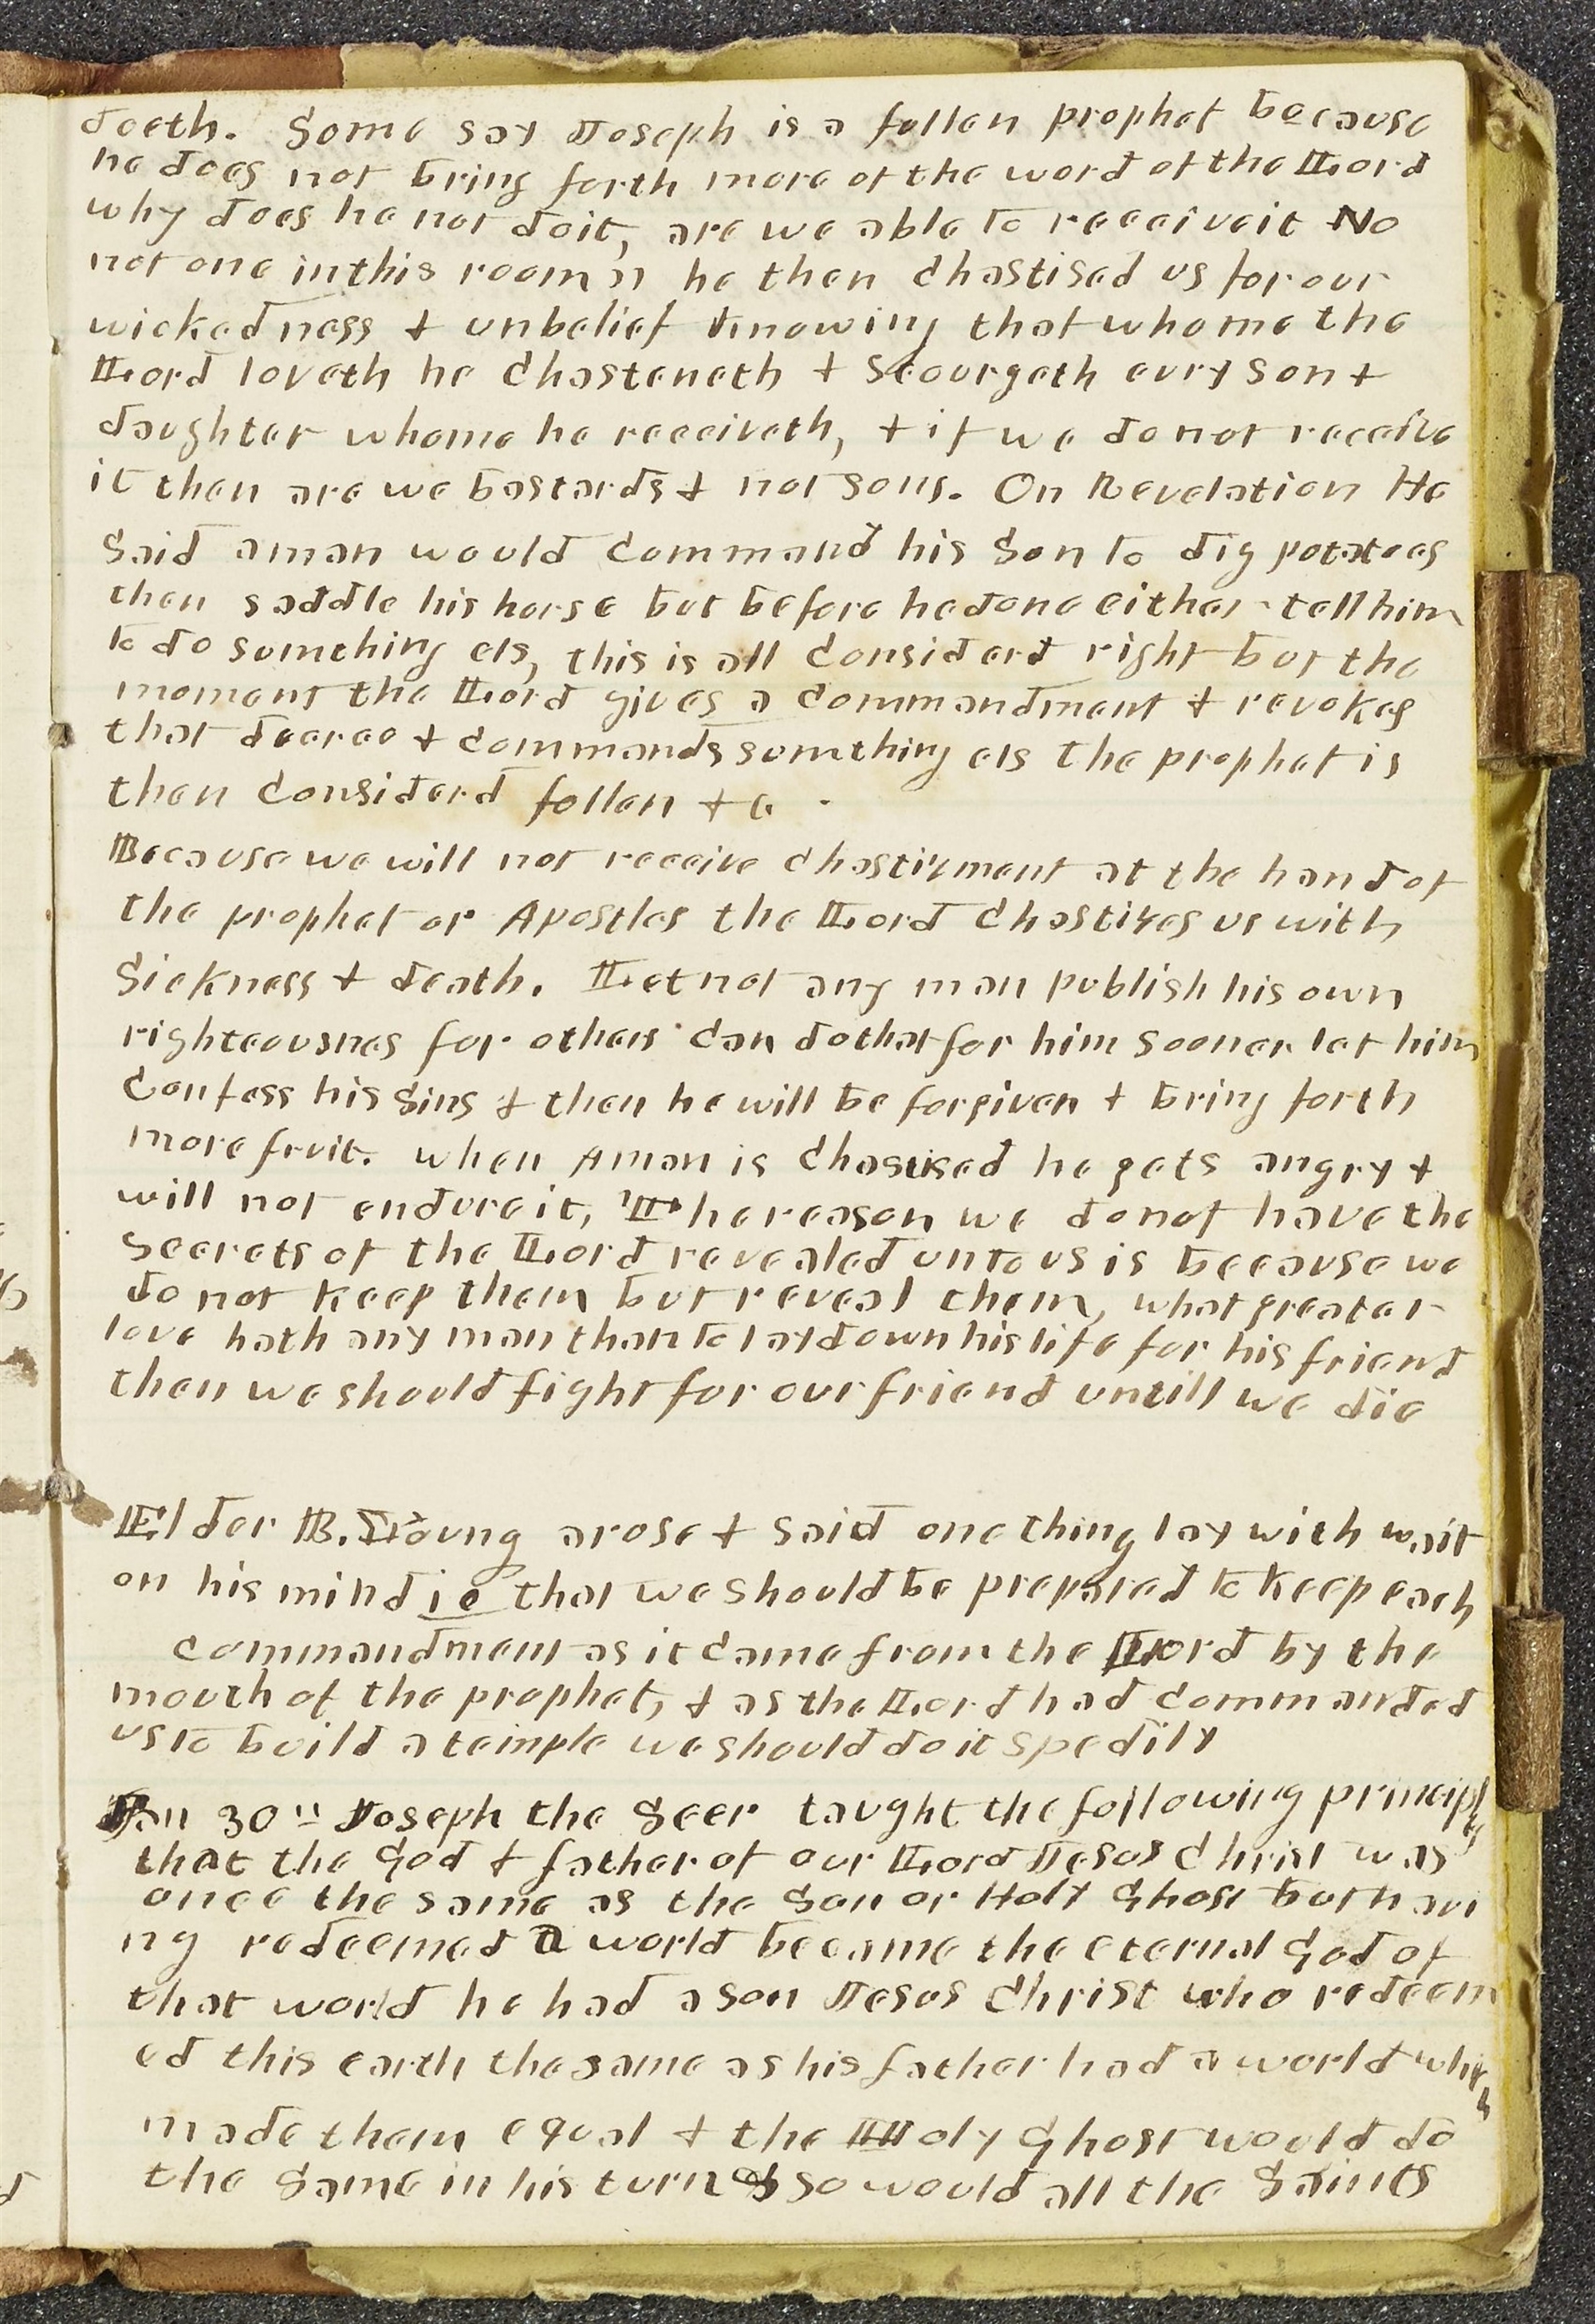 doeth. Some say Joseph is a fallen prophet because
he does not bring forth more of the word of the Lord
why does he not do it, are we able to receive it No
not one in this room" he then chastised us for our
wickedness & unbelief knowing that whome the
Lord loveth he chasteneth & scourgeth evry son &
daughter whome he receiveth, & if we do not receive
it then are we bastards & not sons. On Revelation He
said a man would command his son to dig potatoes
then saddle his horse but before he done either tell him
to do sumthing els, this is all considerd right but the
moment the Lord gives a commandment & revokes
that decree & commands sumthing els the prophet is
then considerd fallen & c.
Because we will not receive chastizment at the hand of
the prophet or Apostles the Lord chastizes us with
sickness & death. Let not any man publish his own
righteousnes for others can do that for him sooner let him
confess his sins & then he will be forgiven & bring forth
more fruit. when A man is chastised he gets angry &
will not endure it, The reason we do not have the
secrets of the Lord revealed unto us is because we
do not keep them but reveal them, what greater
love hath any man than to lay down his life for his friend
then we should fight for our friend untill we die
Elder B. Young arose & said one thing lay with wait
on his mind ie that we should be prepared to keep each
commandment as it came from the Lord by the
mouth of the prophet, & as the Lord had commanded
us to build a temple we should do it spedily
Jan 30" Joseph the Seer taught the following principles
that the God & father of our Lord Jesus Christ was
once the same as the Son or Holy Ghost but havi
ng redeemed a world became the eternal God of
that world he had a son Jesus Christ who redeem
ed this earth the same as his father had a world which
made them equal & the Holy Ghost would do
the same in his turn & so would all the Saints